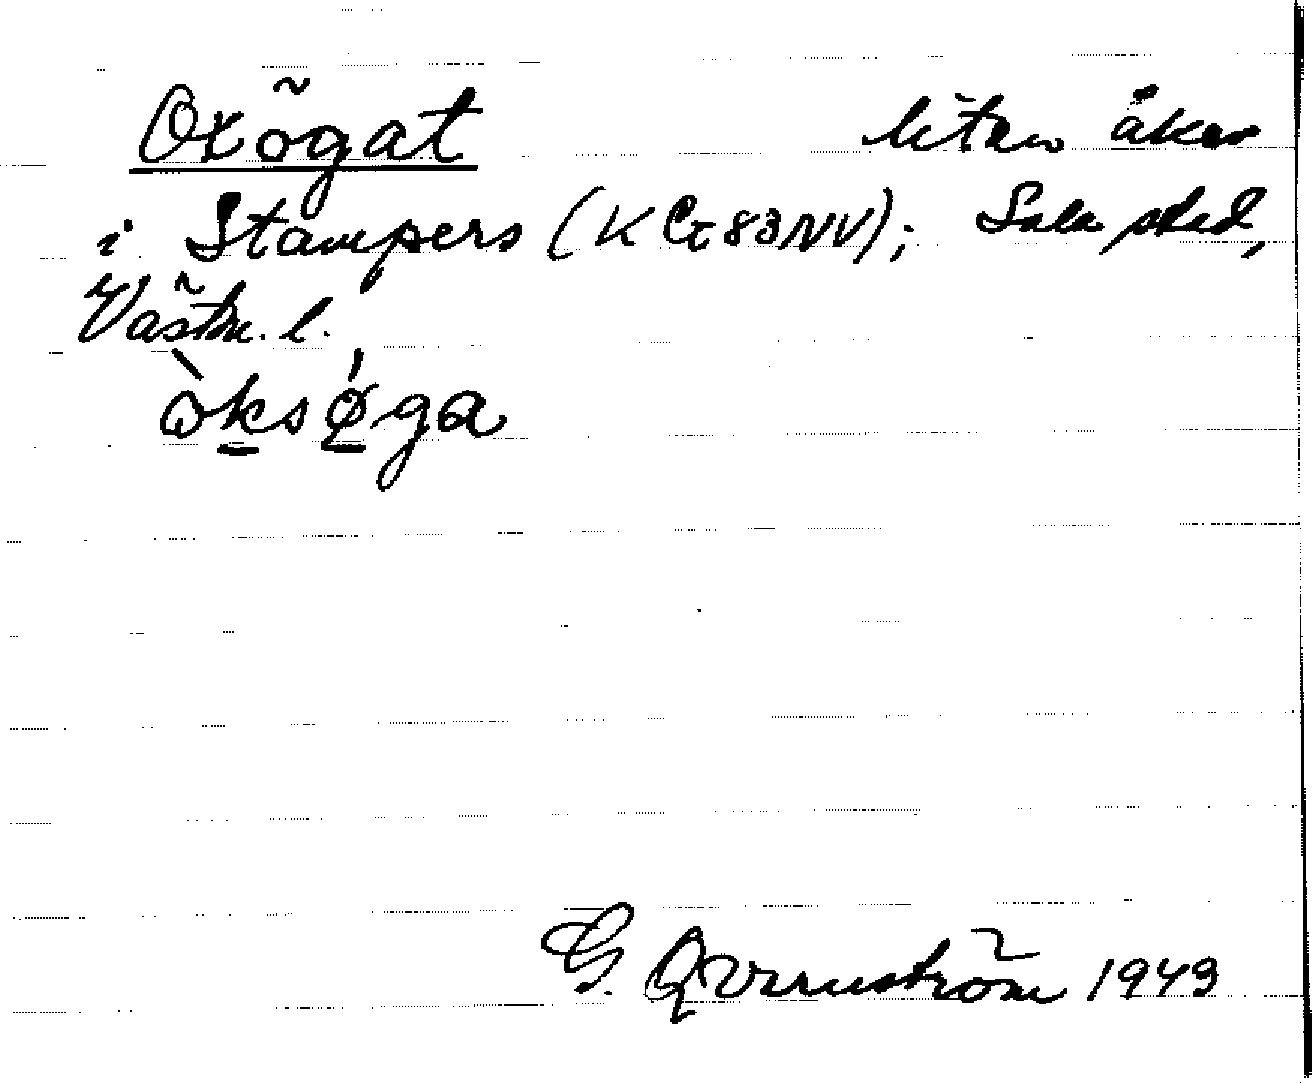 Oxögat liten åker
i Stampers (K Cε 83NV); Sala stad,
Västm. l.
òksǿga
G. Qvarnström 1949